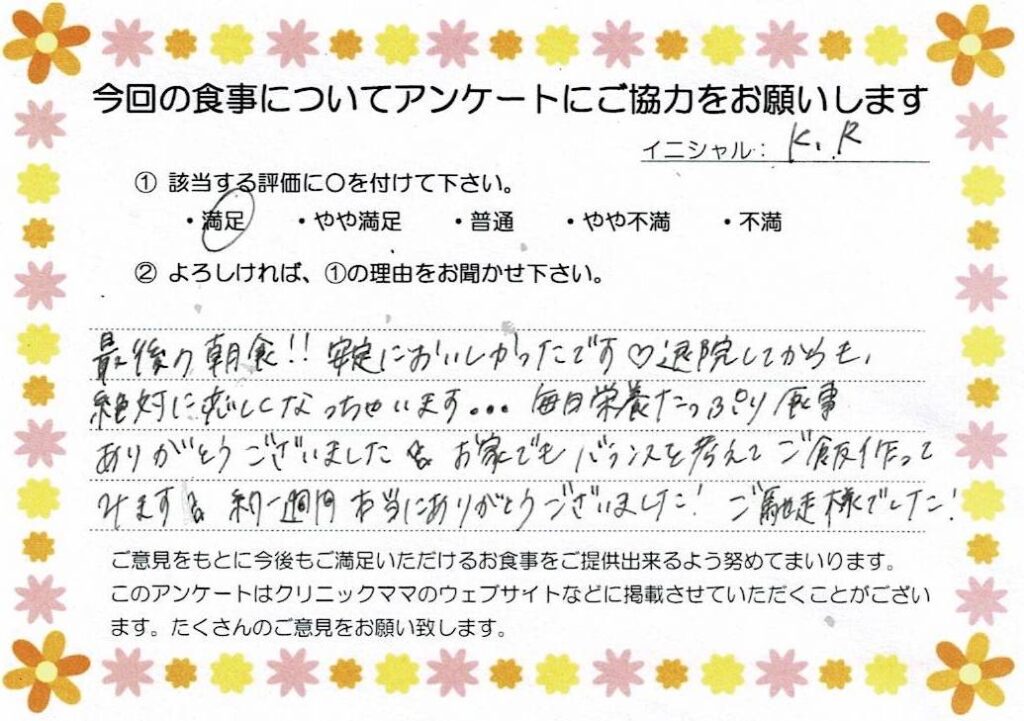 今回の食事についてアンケートにご協力をお願いします
イニシャル： K.R
① 該当する評価に〇を付けて下さい。
・満足 ・やや満足 ・普通 ・やや不満 ・不満
② よろしければ、①の理由をお聞かせ下さい。
最後の朝食!! 安定においしかったです♡退院してからも、
絶対に恋しくなっちゃいます... 毎日栄養たっぷり食事
ありがとうございました お家でもバランスを考えてご飯作って
みます 約一週間本当にありがとうございました! ご馳走様でした!
ご意見をもとに今後もご満足いただけるお食事をご提供出来るよう努めてまいります。
このアンケートはクリニックママのウェブサイトなどに掲載させていただくことがござい
ます。たくさんのご意見をお願い致します。